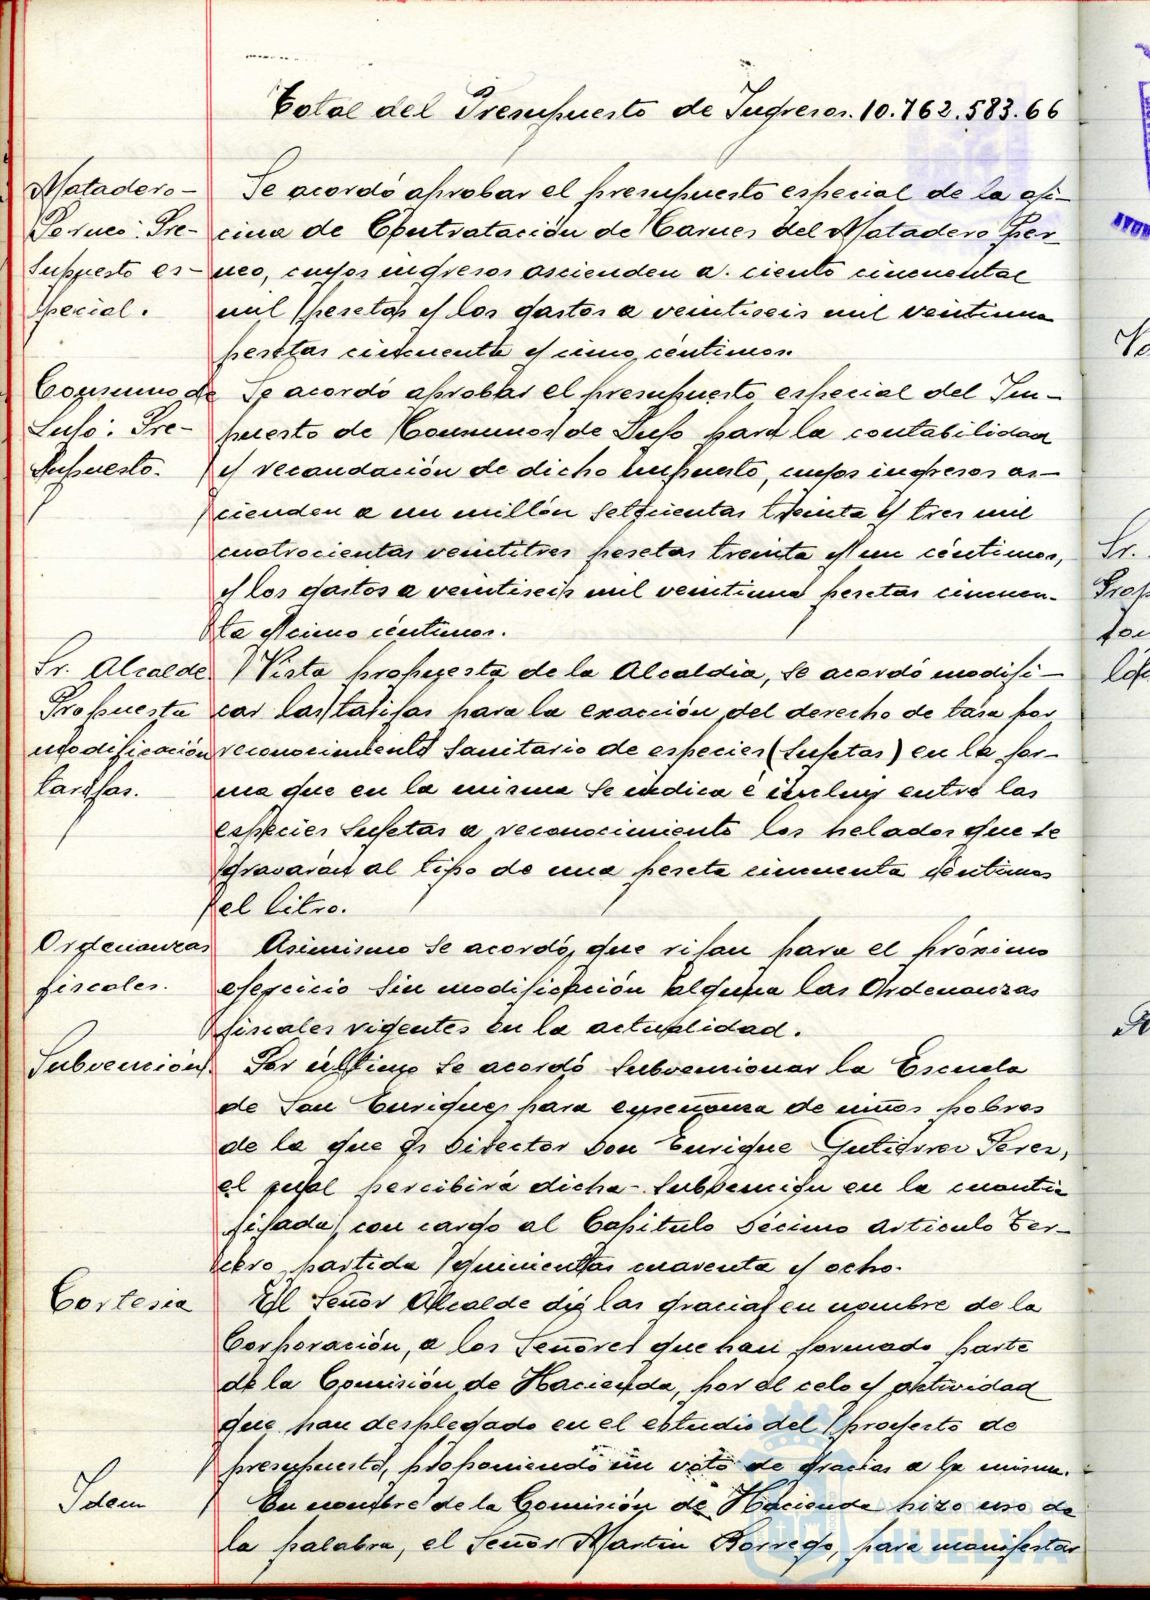 Total del Presupuesto de Ingresos. 10.762.583.66
Matadero-
Porneo: Pre-
supuesto es-
pecial.
Se acordó aprobar el presupuesto especial de la ofi-
cina de Contratación de Carnes del Matadero Por
neo, cuyos ingresos ascienden a ciento cincuenta
mil pesetas y los gastos a veintiseis mil veintiuna
pesetas cincuenta y cinco céntimos.
Consumo de
Lujo: Pre-
supuesto.
Se acordó aprobar el presupuesto especial del Im-
puesto de Consumos de Lujo para la contabilidad
y recaudación de dicho impuesto, cuyos ingresos as-
cienden a un millón setecientas treinta y tres mil
cuatrocientas veintitres pesetas treinta y un céntimos,
y los gastos a veintiseis mil veintiuna pesetas cincuen-
ta y cinco céntimos.
Sr. Alcalde
Propuesta
modificación
tarifas.
Vista propuesta de la Alcaldia, se acordó modifi-
car las tarifas para la exacción del derecho de tasa por
reconocimiento sanitario de especies (sujetas) en la for-
ma que en la misma se indica é incluir entre las
especies sujetas a reconocimiento los helados que se
gravarán al tipo de una peseta cincuenta céntimos
el litro.
Ordenanzas
fiscales.
Asimismo se acordó, que rijan para el próximo
ejercicio sin modificación alguna las Ordenanzas
fiscales vigentes en la actualidad.
Subvención.
Por último se acordó subvencionar la Escuela
de San Enrique, para enseñanza de niños pobres
de la que es Director Don Enrique Gutierrez Perez,
el cual percibirá dicha subvención en la cuantia
fijada, con cargo al Capitulo Décimo articulo Ter-
cero, partida quinientas cuarenta y ocho.
Cortesia
El Señor Alcalde dió las gracias en nombre de la
Corporación, a los Señores que han formado parte
de la Comisión de Hacienda, por el celo y actividad
que han desplegado en el estudio del proyecto de
presupuesto, proponiendo un voto de gracias a la misma.
Idem
En nombre de la Comisión de Hacienda hizo uso de
la palabra, el Señor Martin Borrego, para manifestar
HUELVA
Sr.